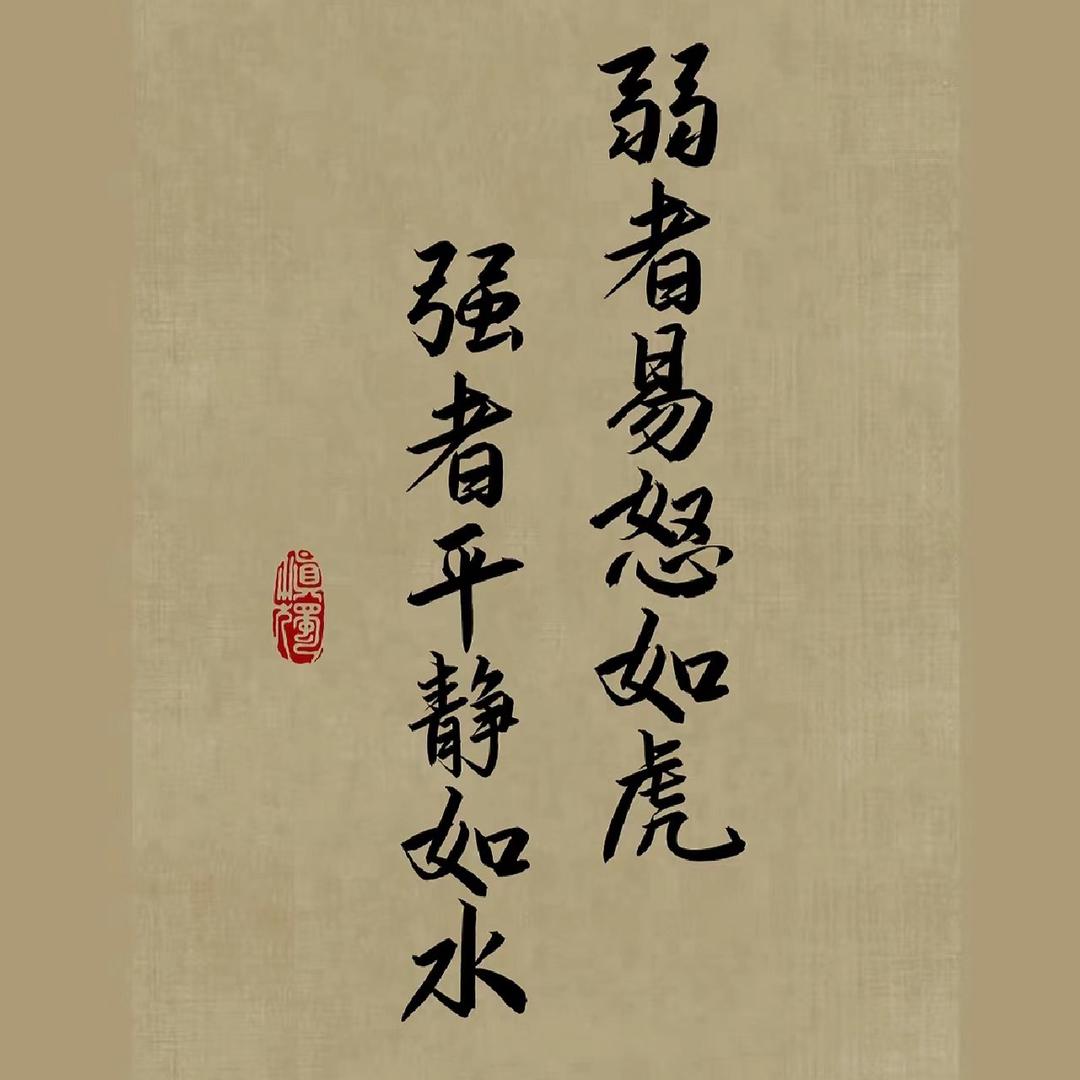 弱者易怒如虎
强者平静如水
慎獨